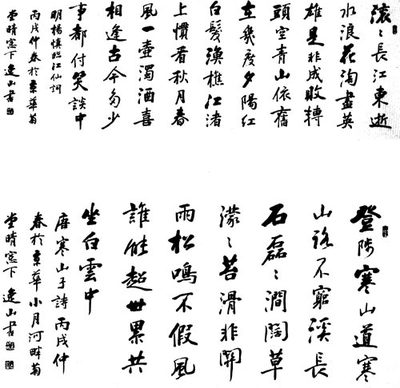 滚〻長江東逝
水浪花淘盡英
雄是非成敗轉
頭空青山依舊
在幾度夕陽紅
白髮漁樵江渚
上慣看秋月春
風一壺濁酒喜
相逢古今多少
事都付笑談中
明楊慎臨江仙詞
丙戌仲春於京華菊
堂晴窗下逸山書
登陟寒山道寒
山路不窮溪長
石磊〻澗闊草
濛〻苔滑非關
雨松鳴不假風
誰能超世累共
坐白雲中
唐寒山子詩丙戌仲
春於京華小月河畔菊
堂晴窗下逸山書